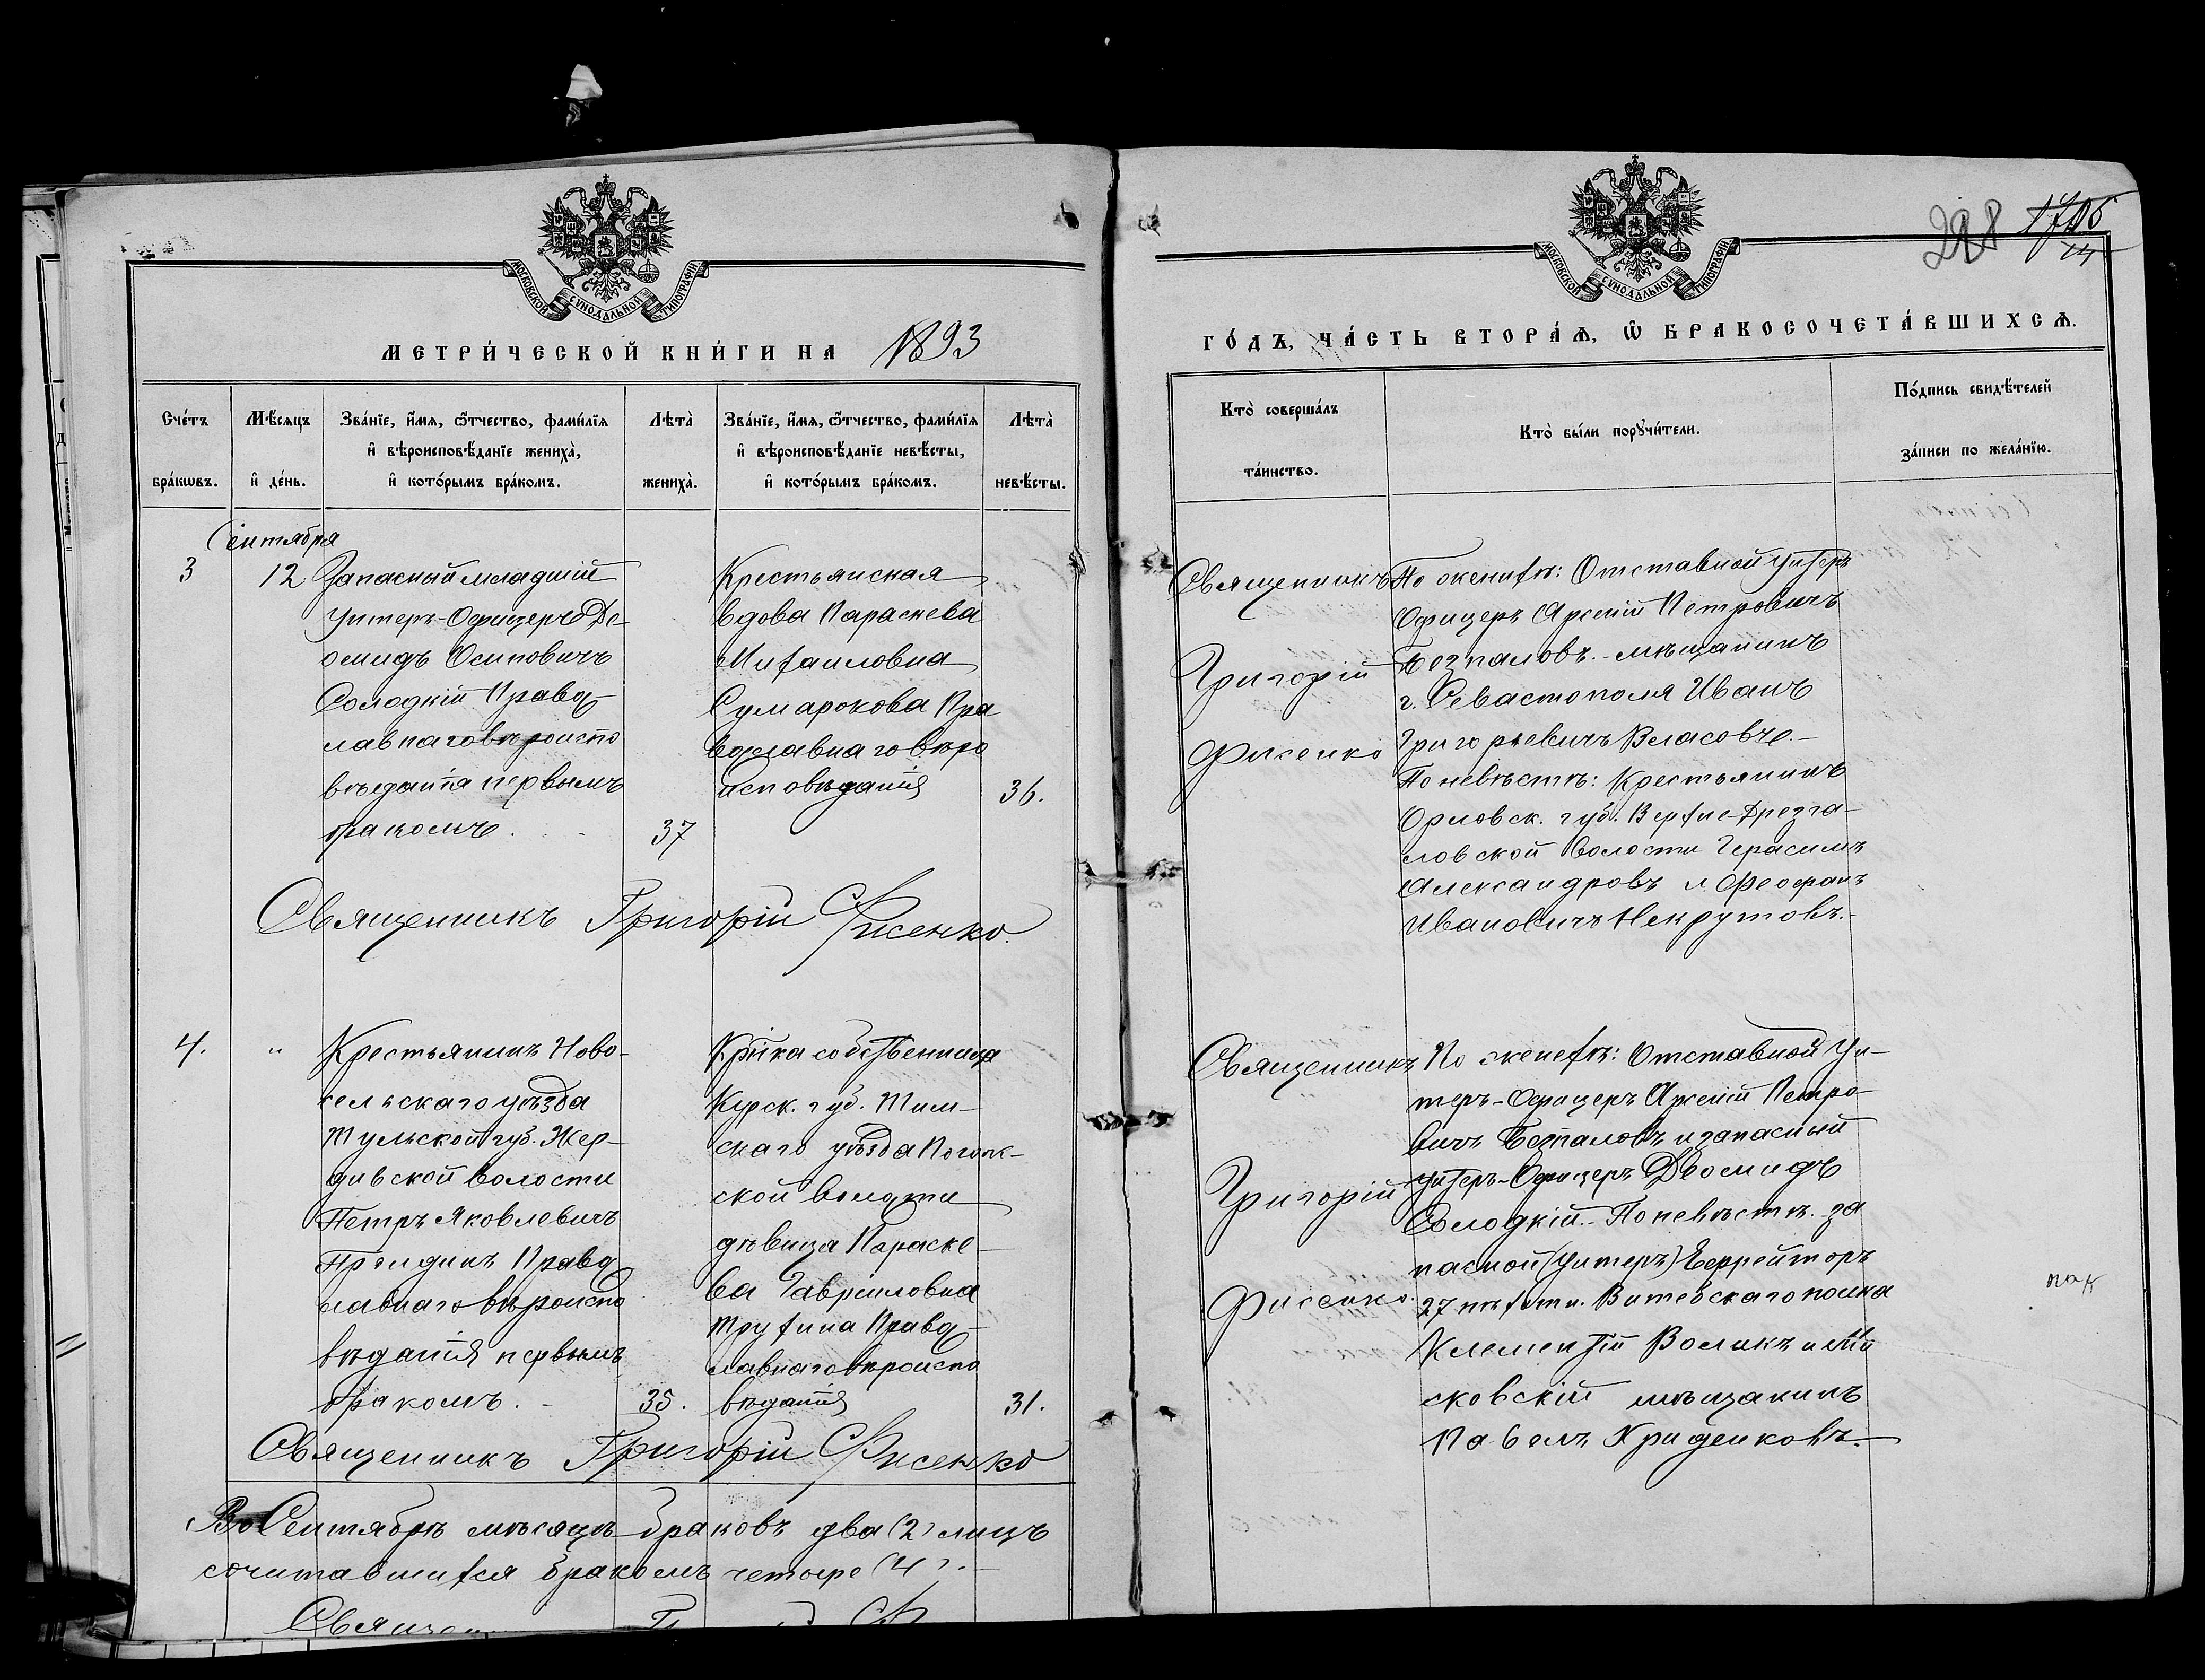 МОСКОВСКОЙ СѴНОДАЛЬНОЙ ТИПОГРАФІИ
МЕТРИ́ЧЕСКОЙ КНИ́ГИ НА 1893
Сче́тъ бра́кѡвъ.
Мѣ́сяцъ и҆ де́нь.
Зва́нїе, и҆́мѧ, ѻ҆́тчество, фами́лїѧ
и҆ вѣроисповѣ́данїе жениха̀,
и҆ кото́рымъ бра́комъ.
Лѣта̀ жениха̀.
Зва́нїе, и҆́мѧ, ѻ҆́тчество, фами́лїѧ
и҆ вѣроисповѣ́данїе невѣ́сты,
и҆ кото́рымъ бра́комъ.
Лѣта̀ невѣ́сты.
Сентября
3
12
Запасный младшій
Унтеръ-Офицеръ Де-
омидъ Осиповичъ
Солодкій Право-
лавнаго вѣроиспо
вѣданія первымъ
бракомъ.
37
Крестьянская
вдова Параскева
Михаиловна
Сумарокова Пра
вославнаго вѣро
исповѣданія
36.
Священникъ Григорій Фисенко.
4.
"
Крестьянинъ Ново-
сельскаго уѣзда
Тульской губ. Жер-
дивской волости
Петръ Яковлевичъ
Право
славнаго вѣроиспо
вѣданія первымъ
бракомъ.
35.
Кр҃нка собственница
Курск. губ. Тим-
скаго уѣзда Погож-
ской волости
дѣвица Параске-
ва Гавріиловна
Трухина Право-
славнаго вѣроиспо
вѣданія
31.
Священникъ Григорій Фисенко
Во Сентябрѣ мѣсяцѣ браковъ два (2) лицъ
сочитавшихся бракомъ четыре (4).-
Священ
МОСКОВСКОЙ СѴНОДАЛЬНОЙ ТИПОГРАФІИ
ГО́ДЪ, ЧА́СТЬ ВТОРА́Ѧ, Ѽ БРАКОСОЧЕТА́ВШИХСѦ.
Кто̀ соверша́лъ та́инство.
Кто̀ бы́ли порꙋчи́тели.
По́дпись свидѣ́телей за́писи по жела́нїю.
Священникъ
Григорій
Фисенко
По женихѣ: Отставной Унтеръ
Офицеръ Арсеній Петровичъ
Безпаловъ.- мѣщанинъ
г. Севастополя Иванъ
Григорьевичъ Власовъ.-
По невѣстѣ: Крестьянинъ
Орловск. губ. Верхне-Дрезга-
ловской волости Герасимъ
Александровъ и Феофанъ
Ивановичъ Некрутовъ.-
Священникъ
Григорій
Фисенко.
По женихѣ: Отставной Ун-
теръ-Офицеръ Арсеній Петро-
вичъ Безпаловъ и запасный
унтеръ-Офицеръ Деомидъ
Солодкій.- По невѣстѣ. за
пасной (Унтеръ) Ефрейторъ
27 пѣхотн. Витебскаго полка
Климентій Воликъ и
сковскій мѣщанинъ
Павелъ Криденковъ.